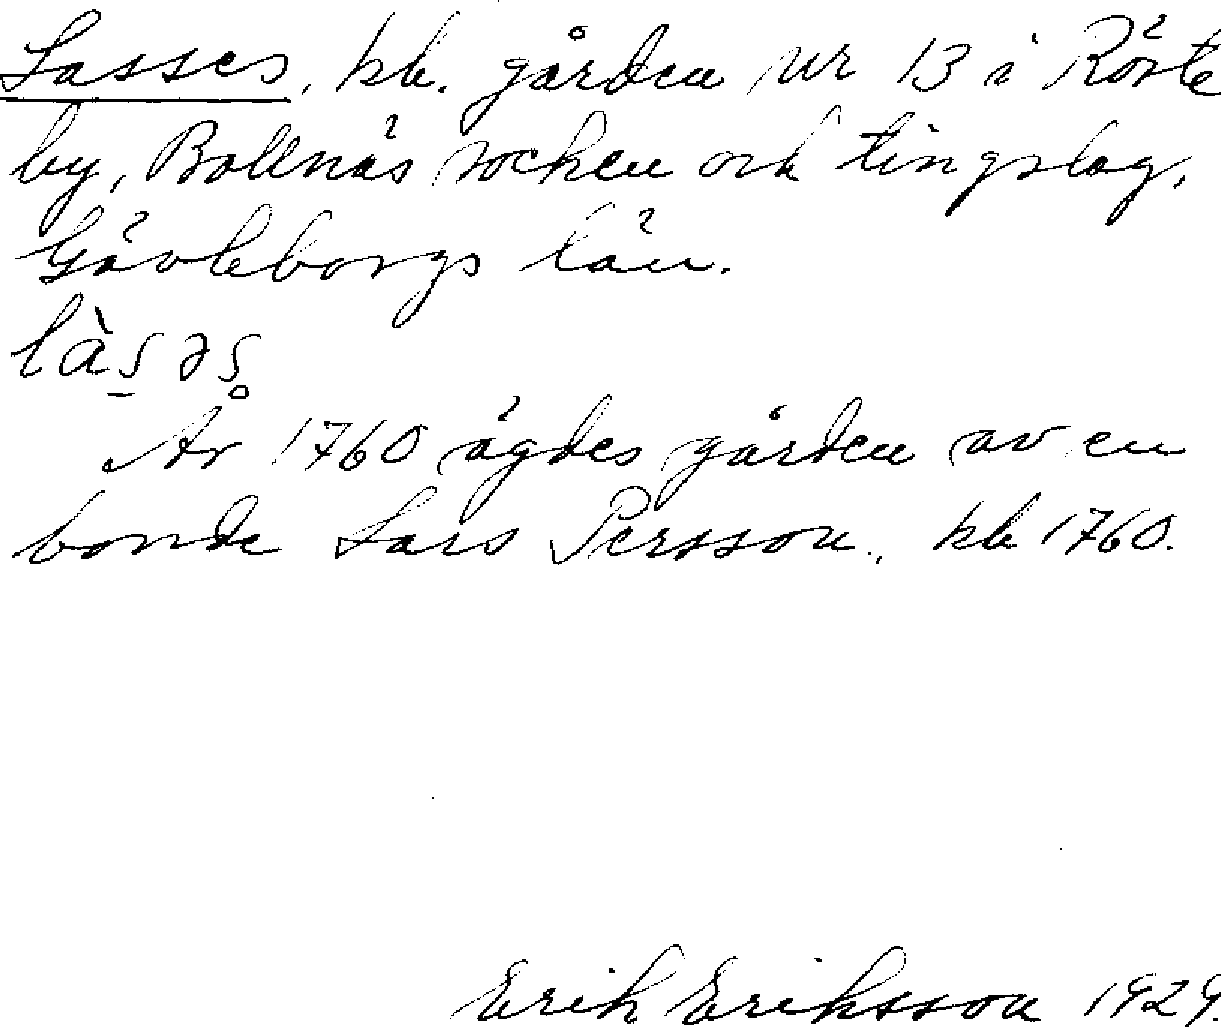 Lasses, kb. gården nr 13 i Röste
by, Bollnäs socken och tingslag,
Gävleborgs län.
làs̱əs̥
År 1760 ägdes gården av en
bonde Lars Persson, kb 1760.
Erik Eriksson 1929.